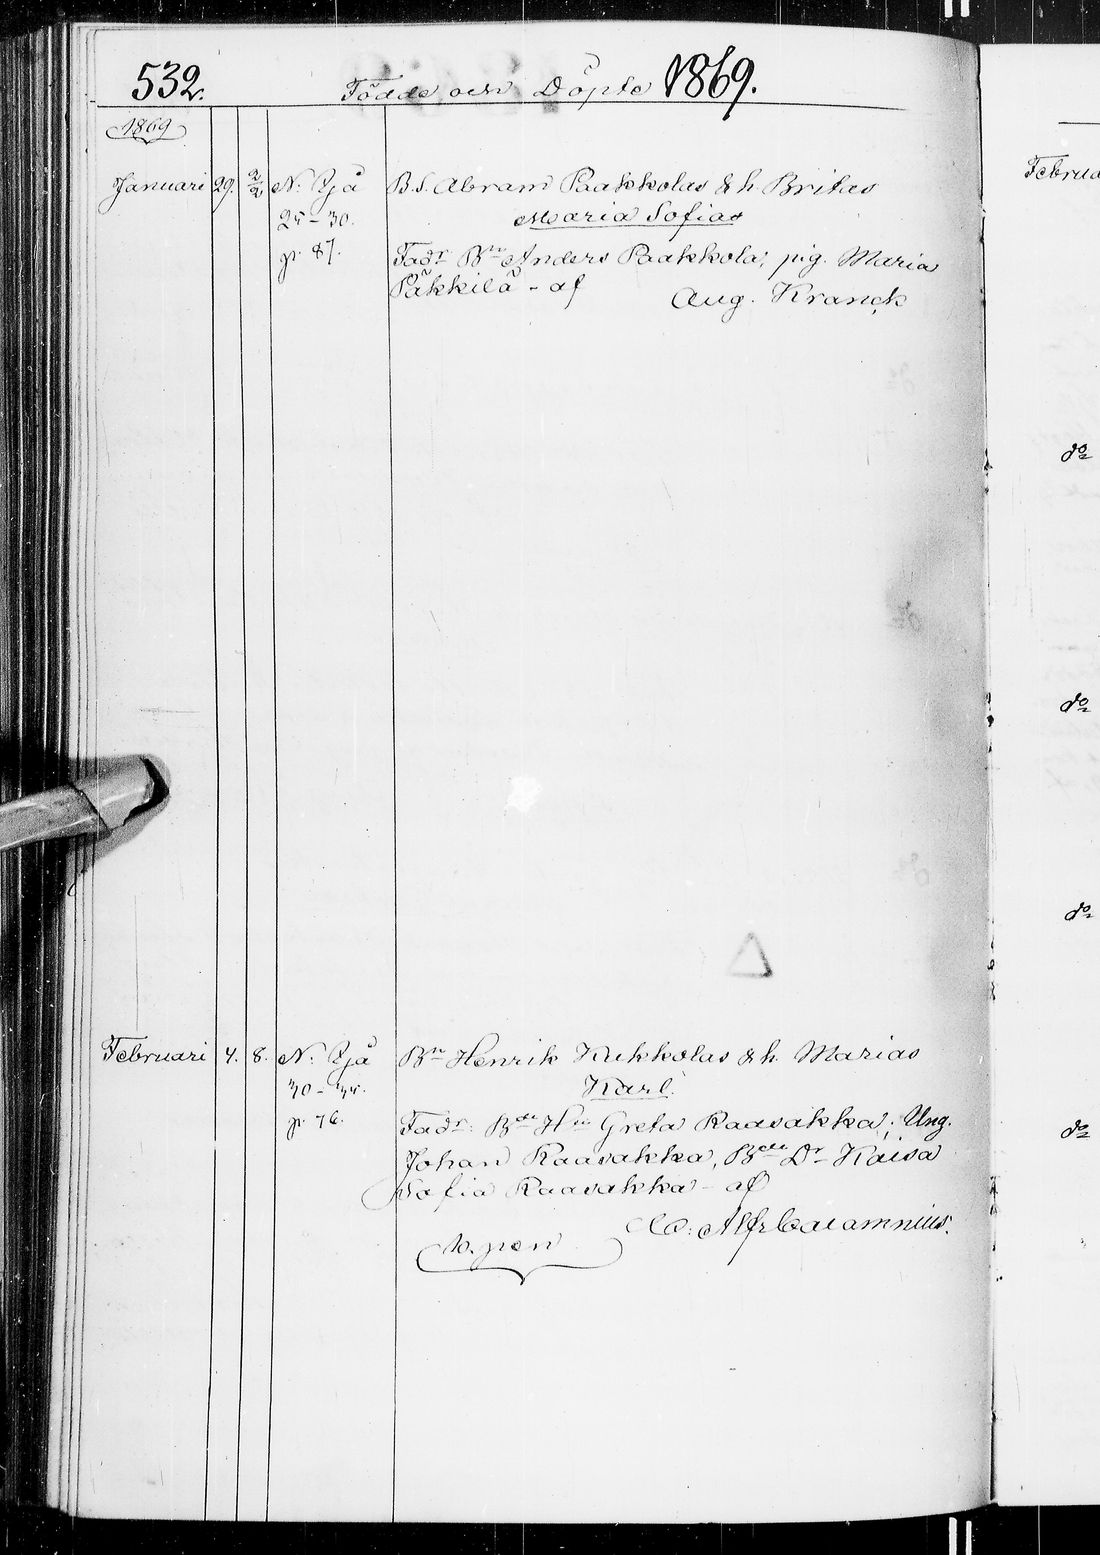 532.
Födde och Döpte 1869.
1869
Januari 29. 2/2 N: Ijå B.S. Abram Paakkolas & h. Britas
25-30. Maria Sofia
p. 87. Fadr Bn Anders Paakkola, pig. Maria
Päkkilä - af Aug. Kranck
Februari 4. 8. N: Ijå Bn Henrik Kukkolas & h. Marias
30-35. Karl.
p. 76. Fadr: Bde Hu Greta Raasakka; Ung.
Johan Raasakka, Bde Dr Kaisa
Sofia Raasakka - af
Alfr Calamnius.
Februa
do
do
do
do